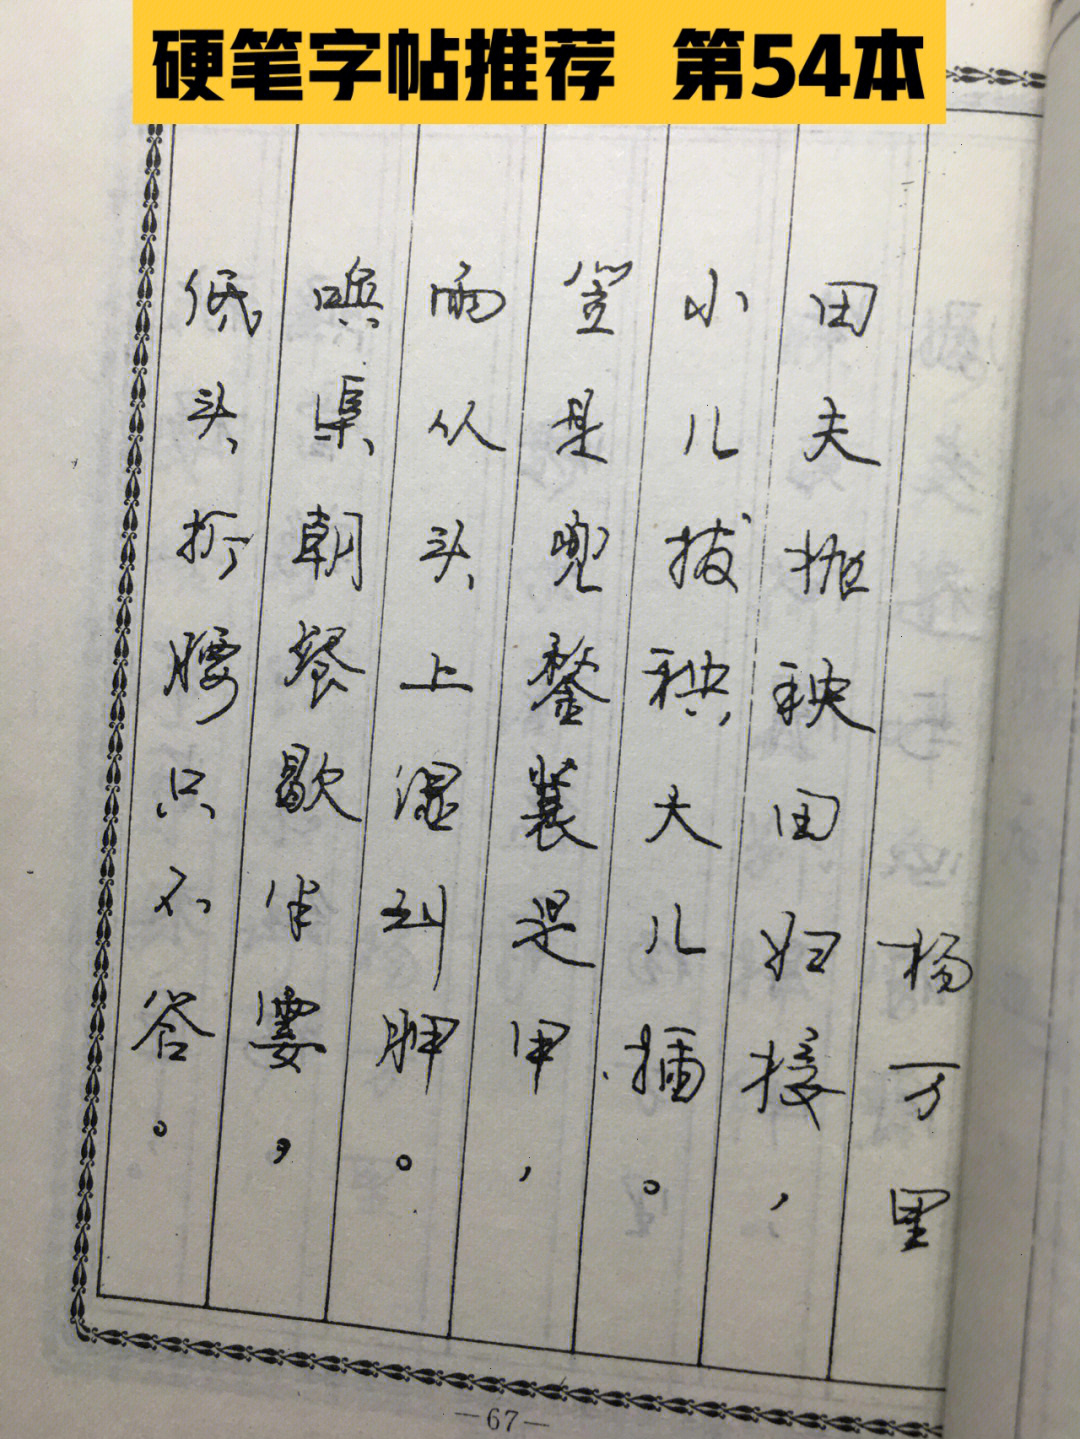 硬笔字帖推荐 第54本
杨万里
田夫抛秧田妇接，
小儿拔秧大儿插。
笠是兜鍪蓑是甲，
雨从头上湿到胛。
唤渠朝餐歇半霎，
低头折腰只不答。
—67—